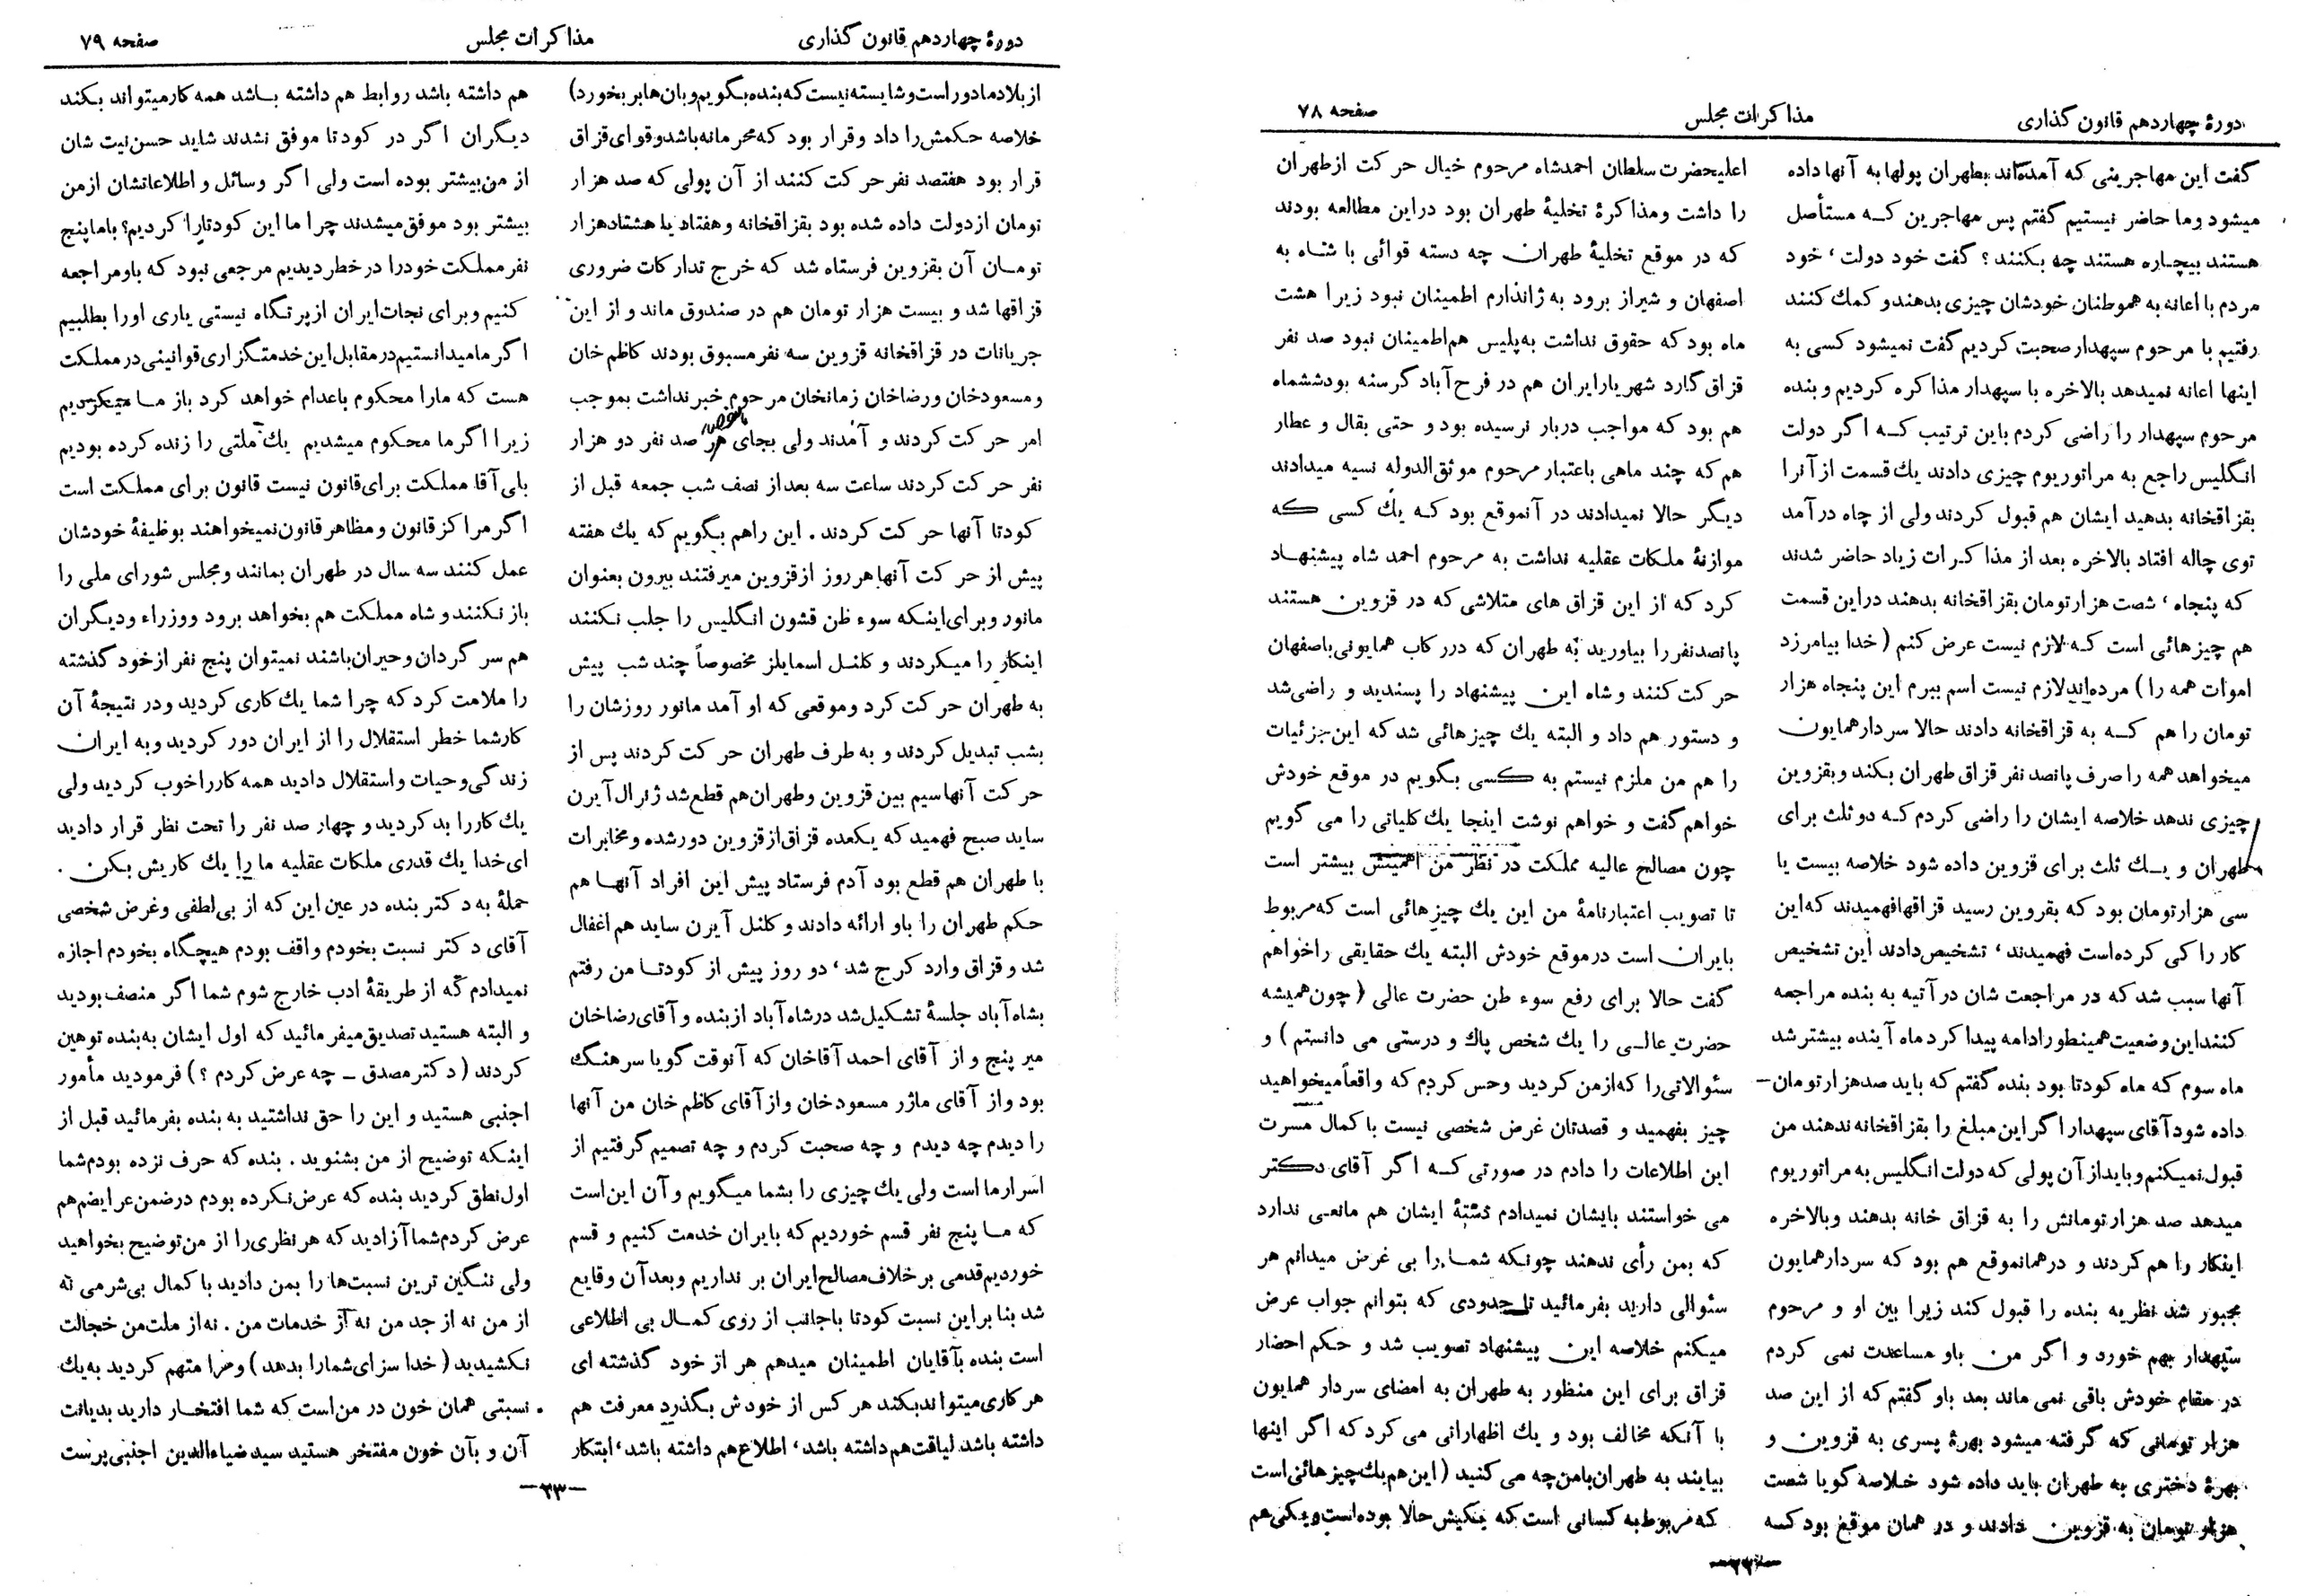 دورهٔ چهاردهم قانون گذاری
مذاکرات مجلس
صفحه ۷۸
گفت این مهاجرینی که آمده‌اند بطهران پولها به آنها داده
میشود وما حاضر نیستیم گفتم پس مهاجرین که مستأصل
هستند بیچاره هستند چه بکنند ؟ گفت خود دولت ، خود
مردم با اعانه به هموطنان خودشان چیزی بدهند و کمك کنند
رفتیم با مرحوم سپهدار صحبت کردیم گفت نمیشود کسی به
اینها اعانه نمیدهد بالاخره با سپهدار مذاکره کردیم و بنده
مرحوم سپهدار را راضی کردم باین ترتیب که اگر دولت
انگلیس راجع به مراتوریوم چیزی دادند یك قسمت از آنرا
بقزاقخانه بدهید ایشان هم قبول کردند ولی از چاه در آمد
توی چاله افتاد بالاخره بعد از مذاکرات زیاد حاضر شدند
که پنجاه ، شصت هزار تومان بقزاقخانه بدهند در این قسمت
هم چیزهائی است که لازم نیست عرض کنم ( خدا بیامرزد
اموات همه را ) مرده‌اند لازم نیست اسم ببرم این پنجاه هزار
تومان را هم که به قزاقخانه دادند حالا سردار همایون
میخواهد همه را صرف پانصد نفر قزاق طهران بکند و بقزوین
چیزی ندهد خلاصه ایشان را راضی کردم که دو ثلث برای
طهران و یك ثلث برای قزوین داده شود خلاصه بیست یا
سی هزار تومان بود که بقزوین رسید قزاقها فهمیدند که این
کار را کی کرده است فهمیدند ، تشخیص دادند این تشخیص
آنها سبب شد که در مراجعت شان در آتیه به بنده مراجعه
کنند این وضعیت همینطور ادامه پیدا کرد ماه آینده بیشتر شد
ماه سوم که ماه کودتا بود بنده گفتم که باید صد هزار تومان
داده شود آقای سپهدار اگر این مبلغ را بقزاقخانه ندهند من
قبول نمیکنم و باید از آن پولی که دولت انگلیس به مراتوریوم
میدهد صد هزار تومانش را به قزاق خانه بدهند و بالاخره
اینکار را هم کردند و در همانموقع هم بود که سردار همایون
مجبور شد نظریه بنده را قبول کند زیرا بین او و مرحوم
سپهدار بهم خورد و اگر من باو مساعدت نمی کردم
در مقام خودش باقی نمی ماند بعد باو گفتم که از این صد
هزار تومانی که گرفته میشود بهرهٔ پسری به قزوین و
بهرهٔ دختری به طهران باید داده شود خلاصه گویا شصت
هزار تومان به قزوین دادند و در همان موقع بود که
اعلیحضرت سلطان احمدشاه مرحوم خیال حرکت از طهران
را داشت و مذاکرهٔ تخلیهٔ طهران بود در این مطالعه بودند
که در موقع تخلیهٔ طهران چه دسته قوائی با شاه به
اصفهان و شیراز برود به ژاندارم اطمینان نبود زیرا هشت
ماه بود که حقوق نداشت به پلیس هم اطمینان نبود صد نفر
قزاق گارد شهریار ایران هم در فرح آباد گرسنه بود ششماه
هم بود که مواجب دربار نرسیده بود و حتی بقال و عطار
هم که چند ماهی باعتبار مرحوم موثق الدوله نسیه میدادند
دیگر حالا نمیدادند در آنموقع بود که یك کسی که
موازنهٔ ملکات عقلیه نداشت به مرحوم احمد شاه پیشنهاد
کرد که از این قزاق های متلاشی که در قزوین هستند
پانصد نفر را بیاورید به طهران که در رکاب همایونی باصفهان
حرکت کنند و شاه این پیشنهاد را پسندید و راضی شد
و دستور هم داد و البته یك چیزهائی شد که این جزئیات
را هم من ملزم نیستم به کسی بگویم در موقع خودش
خواهم گفت و خواهم نوشت اینجا یك کلیاتی را می گویم
چون مصالح عالیه مملکت در نظر من اهمیتش بیشتر است
تا تصویب اعتبارنامهٔ من این یك چیزهائی است که مربوط
بایران است در موقع خودش البته یك حقایقی را خواهم
گفت حالا برای رفع سوء ظن حضرت عالی ( چون همیشه
حضرت عالی را یك شخص پاك و درستی می دانستم ) و
سئوالاتی را که از من کردید وحس کردم که واقعاً میخواهید
چیز بفهمید و قصدتان غرض شخصی نیست با کمال مسرت
این اطلاعات را دادم در صورتی که اگر آقای دکتر
می خواستند بایشان نمیدادم نشئهٔ ایشان هم مانعی ندارد
که بمن رأی ندهند چونکه شما را بی غرض میدانم هر
سئوالی دارید بفرمائید تا حدودی که بتوانم جواب عرض
میکنم خلاصه این پیشنهاد تصویب شد و حکم احضار
قزاق برای این منظور به طهران به امضای سردار همایون
با آنکه مخالف بود و یك اظهاراتی می کرد که اگر اینها
بیایند به طهران بامن چه می کنید ( این هم یك چیزهائی است
که مربوط به کسانی است که ... حالا بوده است و یکی هم
—۲۲—
دورهٔ چهاردهم قانون گذاری
مذاکرات مجلس
صفحه ۷۹
از بلاد ما دور است و شایسته نیست که بنده بگویم و بان ها بر بخورد )
خلاصه حکمش را داد و قرار بود که محرمانه باشد و قوای قزاق
قرار بود هفتصد نفر حرکت کنند از آن پولی که صد هزار
تومان از دولت داده شده بود بقزاقخانه و هفتاد یا هشتاد هزار
تومان آن بقزوین فرستاه شد که خرج تدارکات ضروری
قزاقها شد و بیست هزار تومان هم در صندوق ماند و از این
جریانات در قزاقخانه قزوین سه نفر مسبوق بودند کاظم خان
و مسعود خان و رضاخان زمانخان مرحوم خبر نداشت بموجب
امر حرکت کردند و آمدند ولی بجای هر صد نفر دو هزار
نفر حرکت کردند ساعت سه بعد از نصف شب جمعه قبل از
کودتا آنها حرکت کردند . این راهم بگویم که یك هفته
پیش از حرکت آنها هر روز از قزوین میرفتند بیرون بعنوان
مانور و برای اینکه سوء ظن قشون انگلیس را جلب نکنند
اینکار را میکردند و کلنل اسمایلز مخصوصاً چند شب پیش
به طهران حرکت کرد و موقعی که او آمد مانور روزشان را
بشب تبدیل کردند و به طرف طهران حرکت کردند پس از
حرکت آنها سیم بین قزوین و طهران هم قطع شد ژنرال آیرن
ساید صبح فهمید که یکعده قزاق از قزوین دور شده و مخابرات
با طهران هم قطع بود آدم فرستاد پیش این افراد آنها هم
حکم طهران را باو ارائه دادند و کلنل آیرن ساید هم اغفال
شد و قزاق وارد کرج شد ، دو روز پیش از کودتا من رفتم
بشاه آباد جلسهٔ تشکیل شد در شاه آباد از بنده و آقای رضاخان
میر پنج و از آقای احمد آقاخان که آنوقت گویا سرهنگ
بود و از آقای ماژر مسعود خان و از آقای کاظم خان من آنها
را دیدم چه دیدم و چه صحبت کردم و چه تصمیم گرفتیم از
اسرار ما است ولی یك چیزی را بشما میگویم و آن این است
که ما پنج نفر قسم خوردیم که بایران خدمت کنیم و قسم
خوردیم قدمی بر خلاف مصالح ایران بر نداریم و بعد آن وقایع
شد بنا بر این نسبت کودتا باجانب از روی کمال بی اطلاعی
است بنده بآقایان اطمینان میدهم هر از خود گذشته ای
هر کاری میتواند بکند هر کس از خودش بگذرد معرفت هم
داشته باشد لیاقت هم داشته باشد ، اطلاع هم داشته باشد ، ابتکار
هم داشته باشد روابط هم داشته باشد همه کار میتواند بکند
دیگران اگر در کودتا موفق نشدند شاید حسن نیت شان
از من بیشتر بوده است ولی اگر وسائل و اطلاعاتشان از من
بیشتر بود موفق میشدند چرا ما این کودتا را کردیم؟ باما پنج
نفر مملکت خودرا در خطر دیدیم مرجعی نبود که باو مراجعه
کنیم و برای نجات ایران از پرتگاه نیستی یاری اورا بطلبیم
اگر ما میدانستیم در مقابل این خدمتگزاری قوانینی در مملکت
هست که مارا محکوم باعدام خواهد کرد باز ما میکردیم
زیرا اگر ما محکوم میشدیم یك ملتی را زنده کرده بودیم
بلی آقا مملکت برای قانون نیست قانون برای مملکت است
اگر مراکز قانون و مظاهر قانون نمیخواهند بوظیفهٔ خودشان
عمل کنند سه سال در طهران بمانند و مجلس شورای ملی را
باز نکنند و شاه مملکت هم بخواهد برود ووزراء و دیگران
هم سر گردان و حیران باشند نمیتوان پنج نفر از خود گذشته
را ملامت کرد که چرا شما یك کاری کردید و در نتیجهٔ آن
کار شما خطر استقلال را از ایران دور کردید و به ایران
زندگی و حیات و استقلال دادید همه کار را خوب کردید ولی
یك کار را بد کردید و چهار صد نفر را تحت نظر قرار دادید
ای خدا یك قدری ملکات عقلیه ما را یك کاریش بکن .
حملهٔ به دکتر بنده در عین این که از بی لطفی و غرض شخصی
آقای دکتر نسبت بخودم واقف بودم هیچگاه بخودم اجازه
نمیدادم که از طریقهٔ ادب خارج شوم شما اگر منصف بودید
و البته هستید تصدیق میفرمائید که اول ایشان به بنده توهین
کردند ( دکتر مصدق – چه عرض کردم ؟ ) فرمودید مأمور
اجنبی هستید و این را حق نداشتید به بنده بفرمائید قبل از
اینکه توضیح از من بشنوید . بنده که حرف نزده بودم شما
اول نطق کردید بنده که عرض نکرده بودم در ضمن عرایضم هم
عرض کردم شما آزادید که هر نظری را از من توضیح بخواهید
ولی ننگین ترین نسبت‌ها را بمن دادید با کمال بی شرمی نه
از من نه از جد من نه از خدمات من . نه از ملت من خجالت
نکشیدید ( خدا سزای شمارا بدهد ) و مرا متهم کردید به یك
نسبتی همان خون در من است که شما افتخار دارید بدیانت
آن و بآن خون مفتخر هستید سید ضیاءالدین اجنبی پرست
—۲۳—